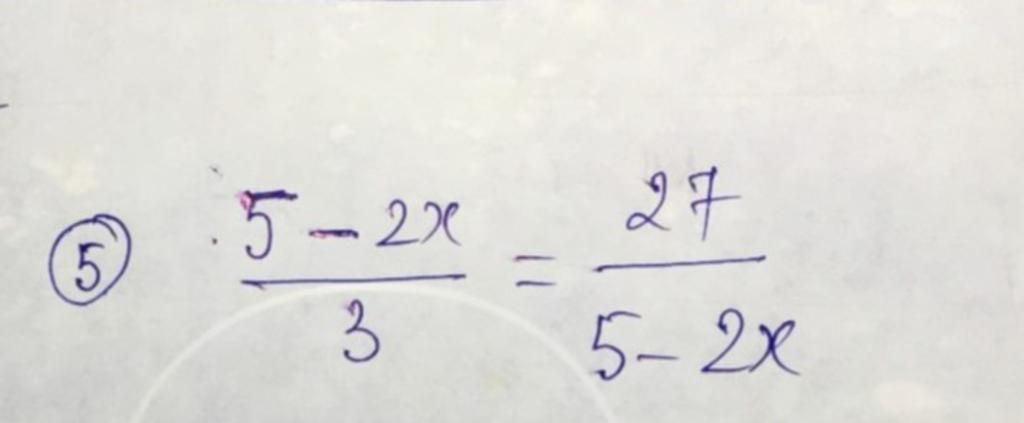 ⑤ \frac{5-2x}{3} = \frac{27}{5-2x}